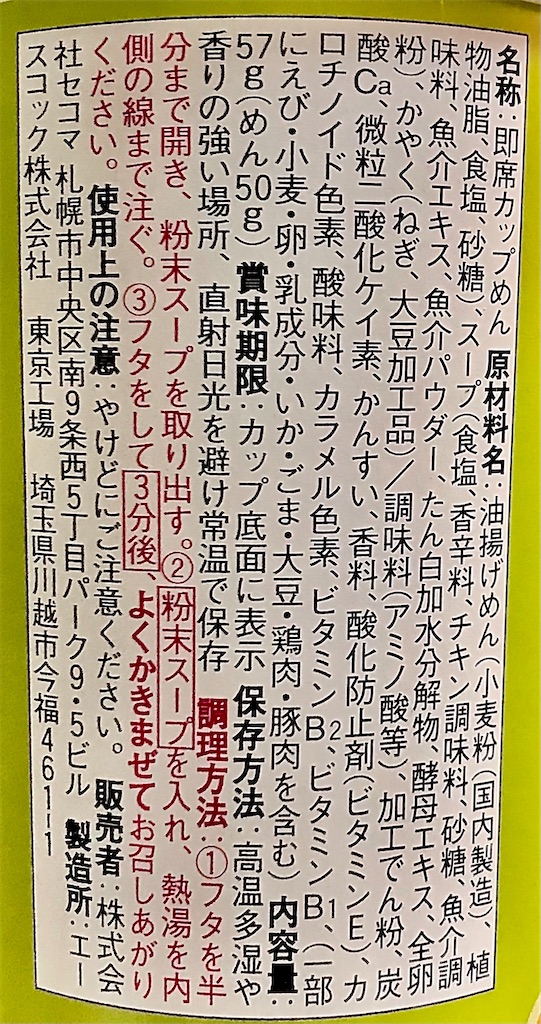 名称:即席カップめん 原材料名:油揚げめん(小麦粉(国内製造)、植
物油脂、食塩、砂糖)、スープ(食塩、香辛料、チキン調味料、砂糖、魚介調
味料、魚介エキス、魚介パウダー、たん白加水分解物、酵母エキス、全卵
粉)、かやく(ねぎ、大豆加工品)/調味料(アミノ酸等)、加工でん粉、炭
酸Ca、微粒二酸化ケイ素、かんすい、香料、酸化防止剤(ビタミンE)、カ
ロチノイド色素、酸味料、カラメル色素、ビタミンB2、ビタミンB1、(一部
にえび・小麦・卵・乳成分・いか・ごま・大豆・鶏肉・豚肉を含む) 内容量:
57g(めん50g) 賞味期限:カップ底面に表示 保存方法:高温多湿や
香りの強い場所、直射日光を避け常温で保存 調理方法:①フタを半
分まで開き、粉末スープを取り出す。②粉末スープを入れ、熱湯を内
側の線まで注ぐ。③フタをして3分後、よくかきまぜてお召しあがり
ください。 使用上の注意:やけどにご注意ください。 販売者:株式会
社セコマ 札幌市中央区南9条西5丁目パーク9・5ビル 製造所:エー
スコック株式会社 東京工場 埼玉県川越市今福461-1